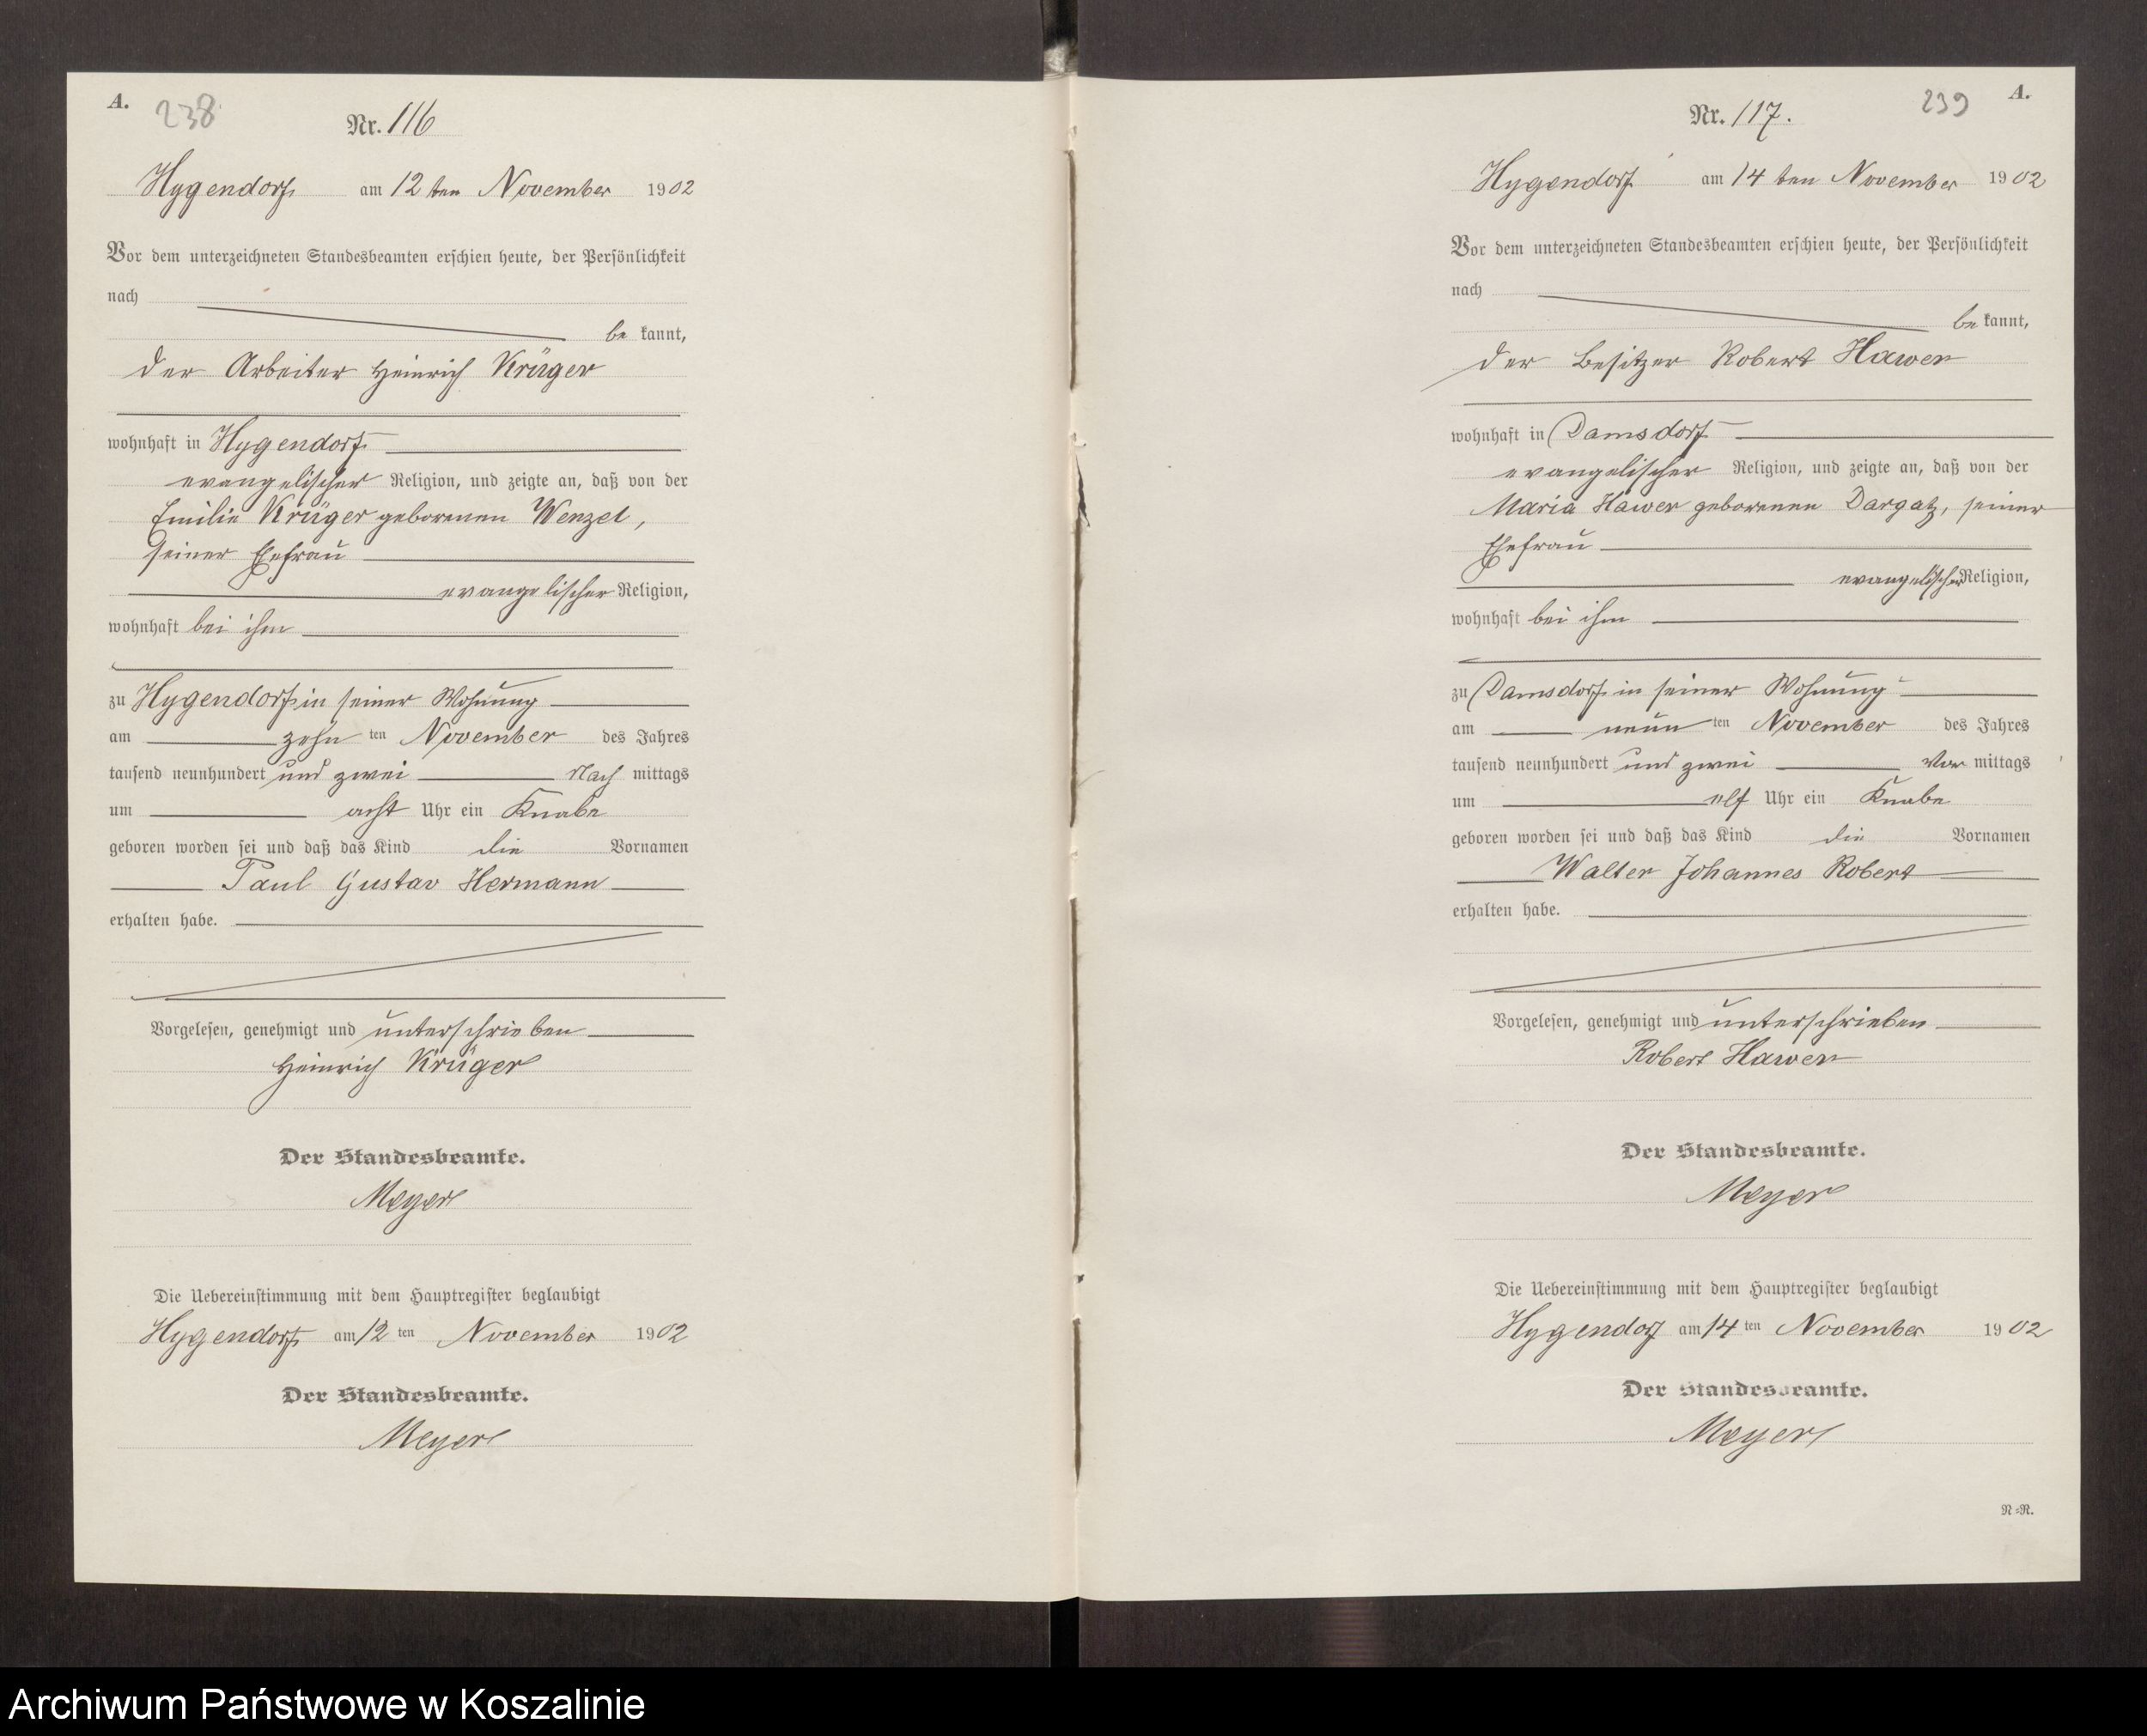 A.
238
Nr. 116
Hygendorf am 12 ten November 1902
Vor dem unterzeichneten Standesbeamten erschien heute, der Persönlichkeit
nach
be kannt,
der Arbeiter Heinrich Krüger
wohnhaft in Hygendorf
evangelischer Religion, und zeigte an, daß von der
Emilie Krüger geborenen Wenzel,
seiner Ehefrau
evangelischer Religion,
wohnhaft bei ihm
zu Hygendorf in seiner Wohnung
am zehn ten November des Jahres
tausend neunhundert und zwei Nach mittags
um acht Uhr ein Knabe
geboren worden sei und daß das Kind die Vornamen
Paul Gustav Hermann
erhalten habe.
Vorgelesen, genehmigt und unterschrieben
Heinrich Krüger
Der Standesbeamte.
Meyer
Die Uebereinstimmung mit dem Hauptregister beglaubigt
Hygendorf am 12 ten November 1902
Der Standesbeamte.
Meyer
239
A.
Nr. 117.
Hygendorf am 14 ten November 1902
Vor dem unterzeichneten Standesbeamten erschien heute, der Persönlichkeit
nach
be kannt,
der Besitzer Robert Hawer
wohnhaft in Damsdorf
evangelischer Religion, und zeigte an, daß von der
Maria Hawer geborenen Dargatz, seiner
Ehefrau
evangelischer Religion,
wohnhaft bei ihm
zu Damsdorf in seiner Wohnung
am neun ten November des Jahres
tausend neunhundert und zwei Vor mittags
um elf Uhr ein Knabe
geboren worden sei und daß das Kind die Vornamen
Walter Johannes Robert
erhalten habe.
Vorgelesen, genehmigt und unterschrieben
Robert Hawer
Der Standesbeamte.
Meyer
Die Uebereinstimmung mit dem Hauptregister beglaubigt
Hygendorf am 14 ten November 1902
Der Standesbeamte.
Meyer
N=R.
Archiwum Państwowe w Koszalinie